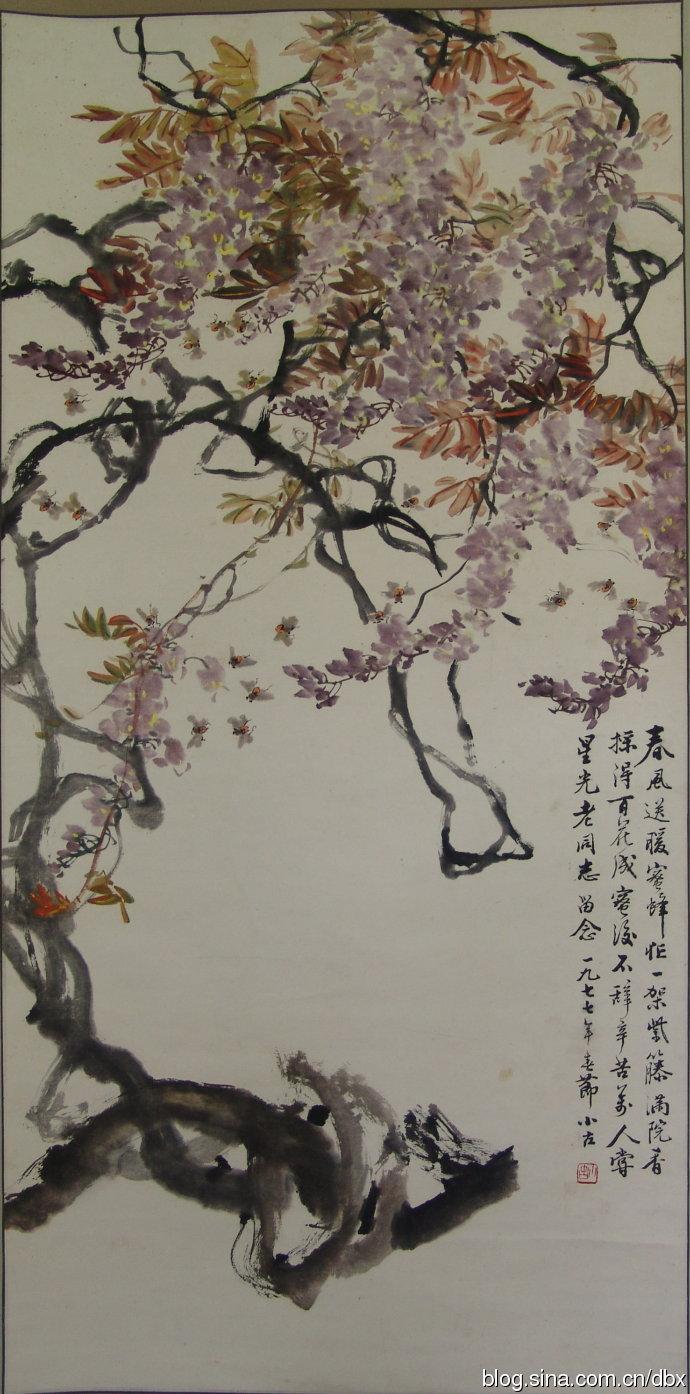 春风送暖蜜蜂忙一架紫藤满院香
採得百花成蜜后不辞辛苦万人尝
星光老同志留念一九七七年春节小古
blog.sina.com.cn/dbx